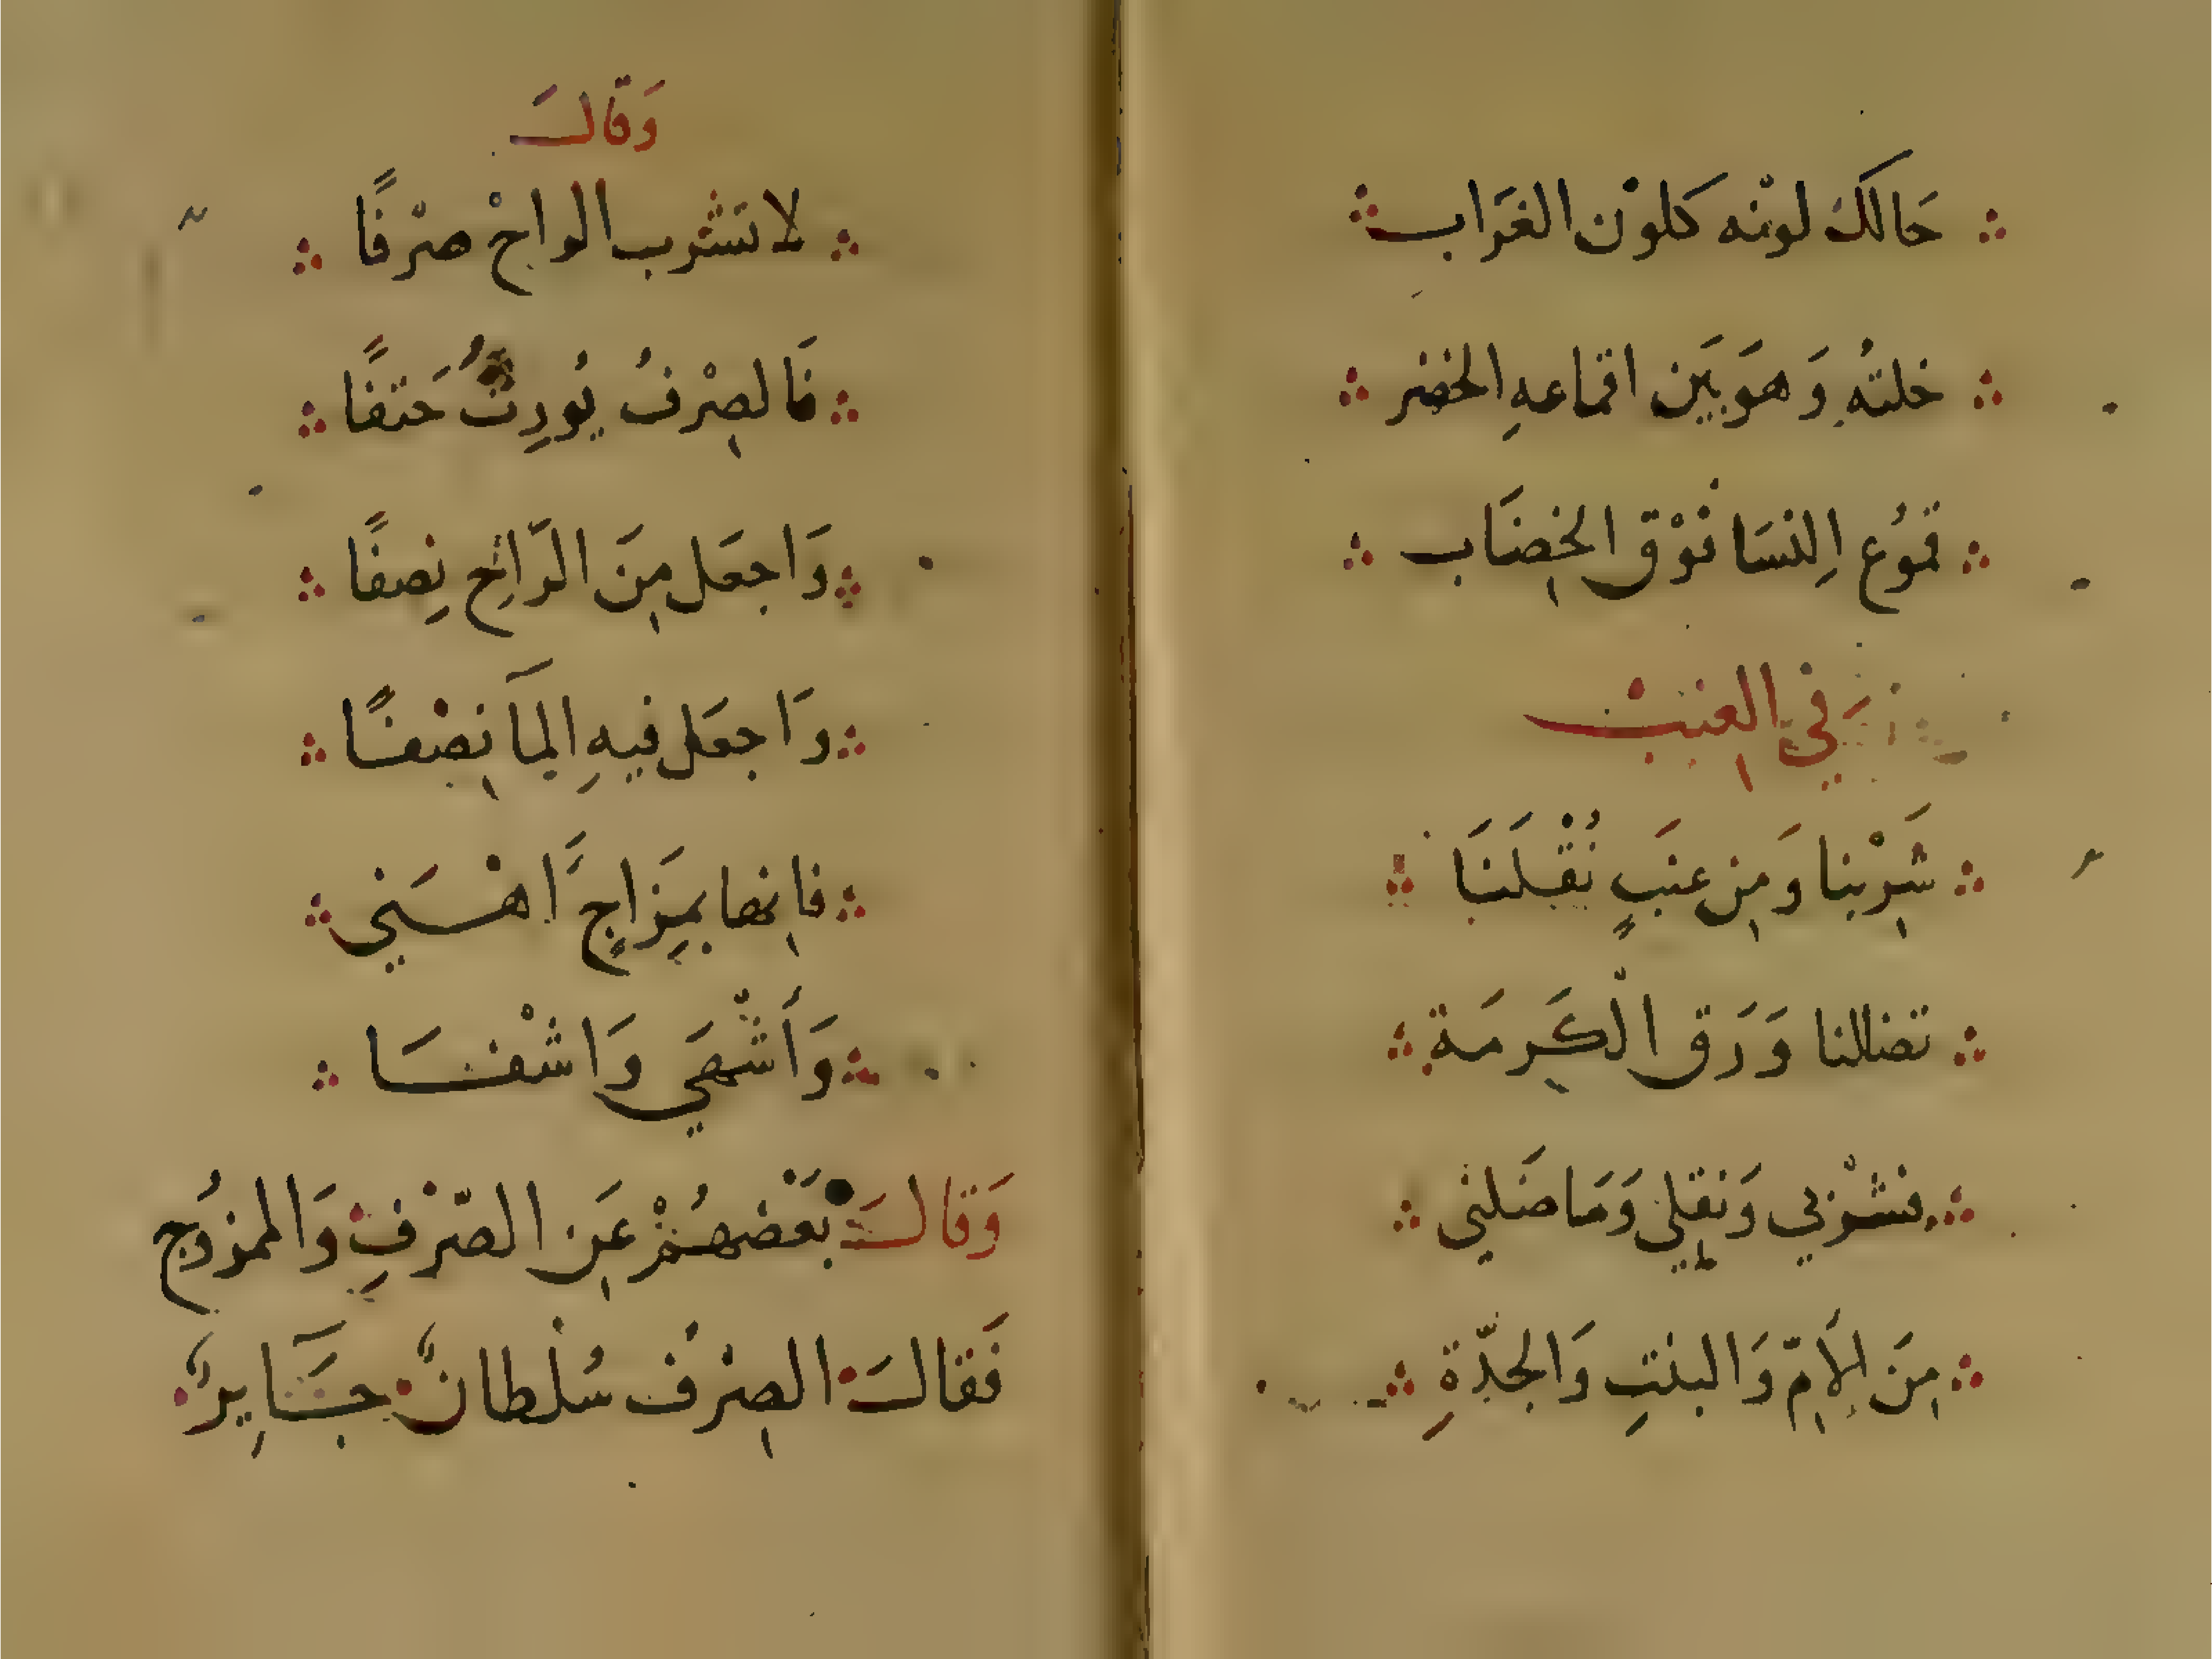 حَالكَ لونْه كلوْن الغَرَاب
خلتهُ وَهوَ بَيَن اقماعهِ الخضر
قموُع اِلنسَا فوْق الخِضَاب
وَفي العنبْ
شَرِبْنا وَمِن عنَبٍ نُقْلَنَا
تضاللنا وَرَق الْكَرمَة
فشْربي وَنقِلي وَمَا ضَلني
مِنَ الأمِّ وَالبنتِ وَالجدّةِ
وَقَالَ
لا تشرب الراحْ صرْفًا
فَالصِرْفُ يُورِثُ حَتفًا
وَاجعَل مِنَ الرَّاحِ نِصفًا
وَاجعَل فيهِ المآ نِصْفًا
فاِنها بمِزَاجٍ اَهْنَي
وَأَشْهَي وَاشْفَا
وَقالَ بَعْضهُمْ عَن الصّرْفِ وَالممزوُج
فَقالَ الصِرْف سُلْطانٌ جَآيِرٌ